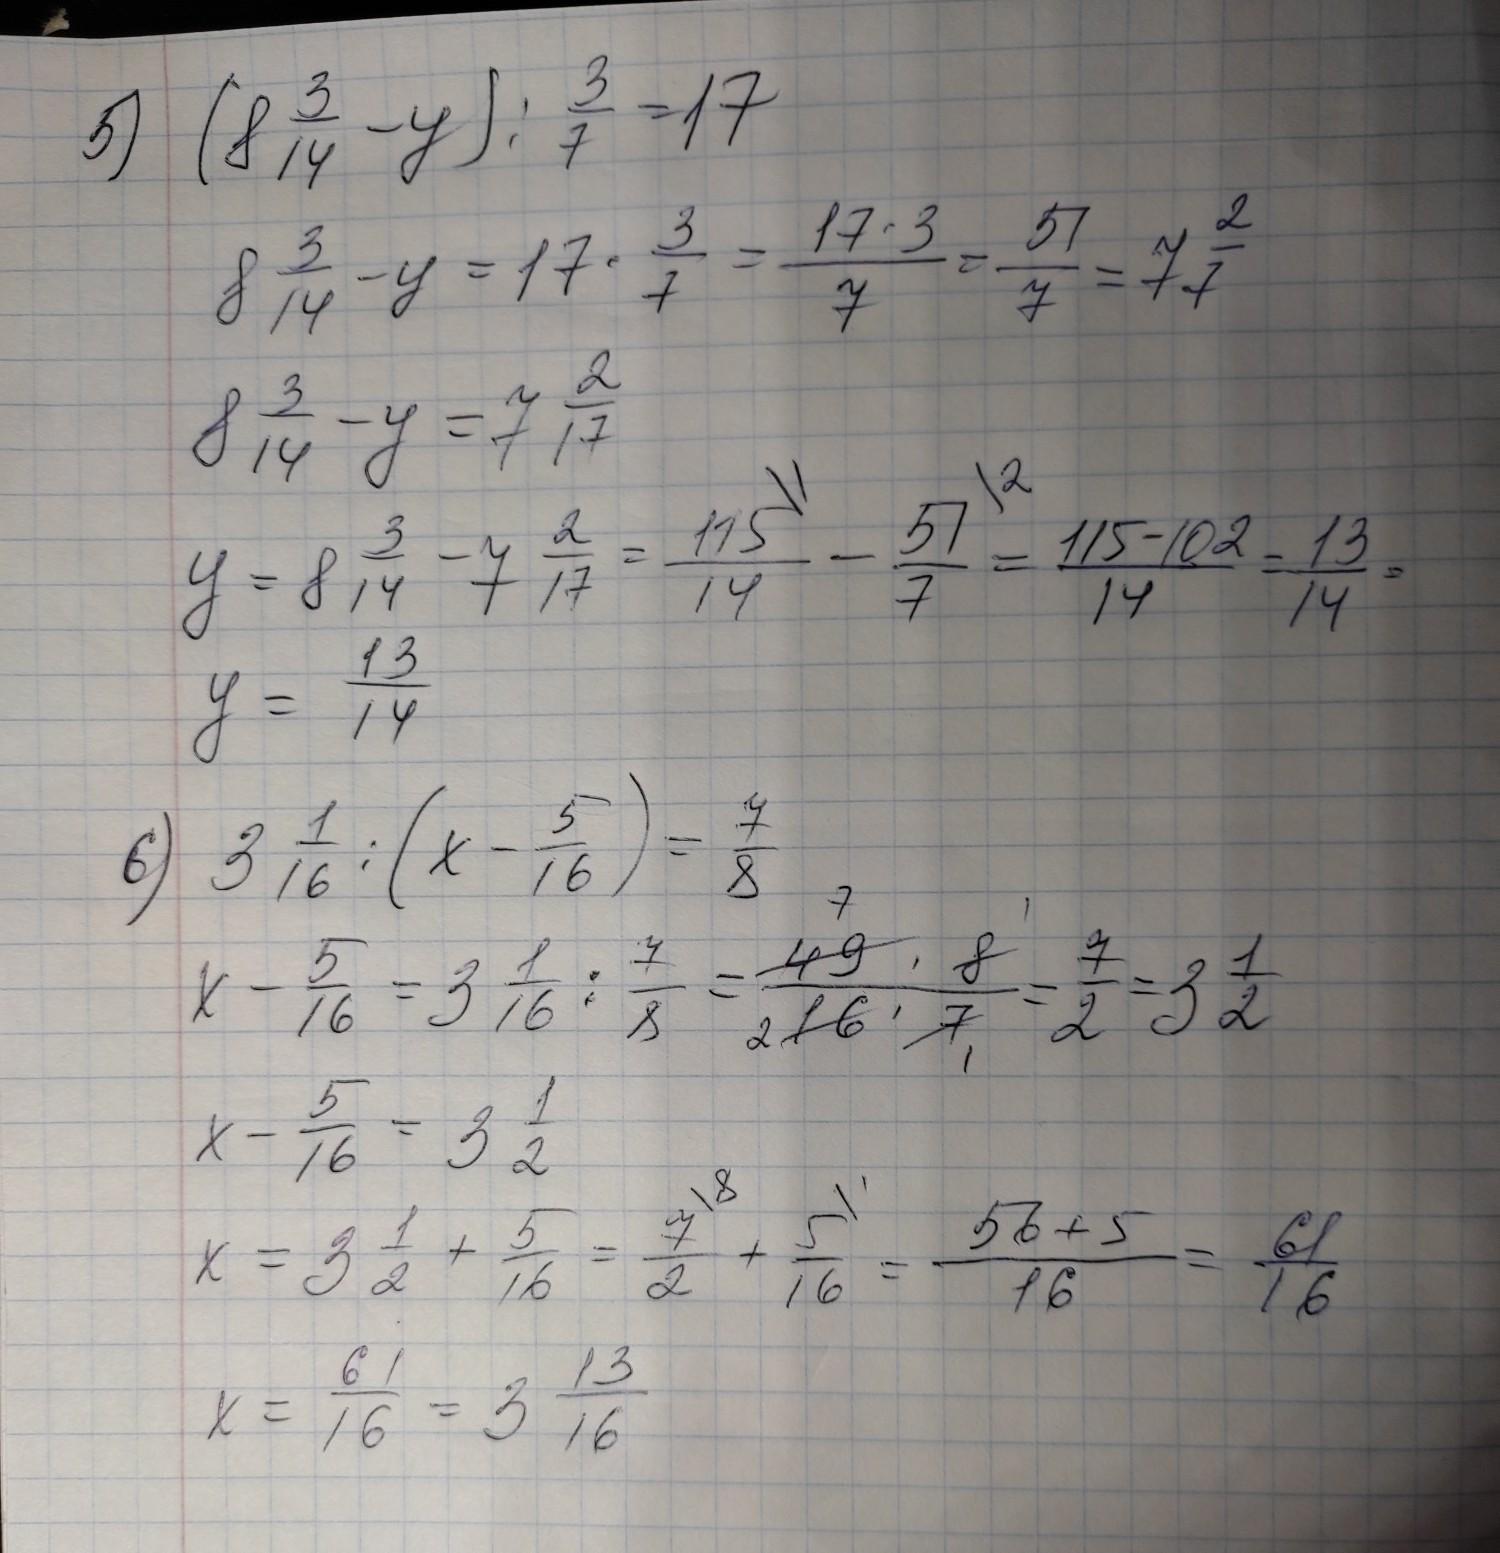 5) (8 3/14 - y) : 3/7 = 17
8 3/14 - y = 17 · 3/7 = 17·3/7 = 51/7 = 7 2/7
8 3/14 - y = 7 2/17
y = 8 3/14 - 7 2/17 = 115\1/14 - 51\2/7 = 115-102/14 = 13/14 =
y = 13/14
6) 3 1/16 : (x - 5/16) = 7/8
7 1
x - 5/16 = 3 1/16 : 7/8 = 49 · 8/16 · 7 = 7/2 = 3 1/2
2 1
x - 5/16 = 3 1/2
x = 3 1/2 + 5/16 = 7\8/2 + 5\1/16 = 56+5/16 = 61/16
x = 61/16 = 3 13/16